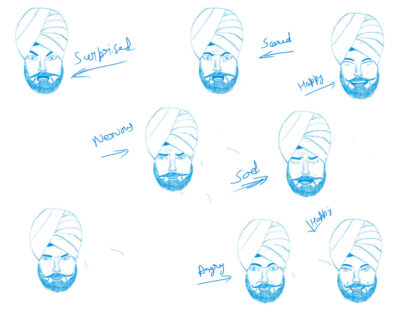 Surprised
Scared
Happy
Nervous
Sad
Happy
Angry